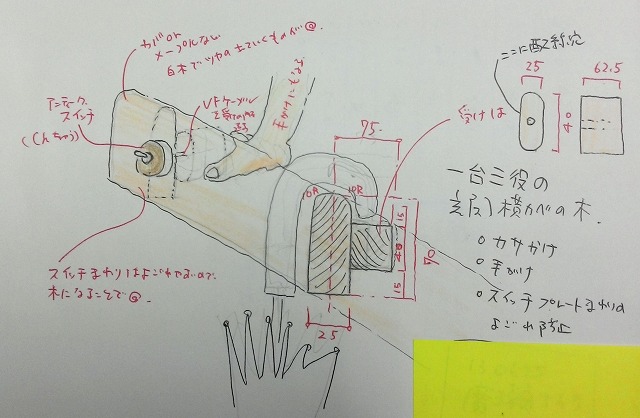 カバor
メープルなど
白木でツヤの出ていくものが◎.
アンティーク
スイッチ
(しんちゅう)
VFケーブル
手がけにもなる
スイッチまわりはよごれやすいので
木になることで◎.
75
10R
10R
15
40
15
70
25
受けは
ここに配線穴
25
40
62.5
一台三役の
階段横かべの木.
○カサかけ
○手がけ
○スイッチプレートまわりの
よごれ防止